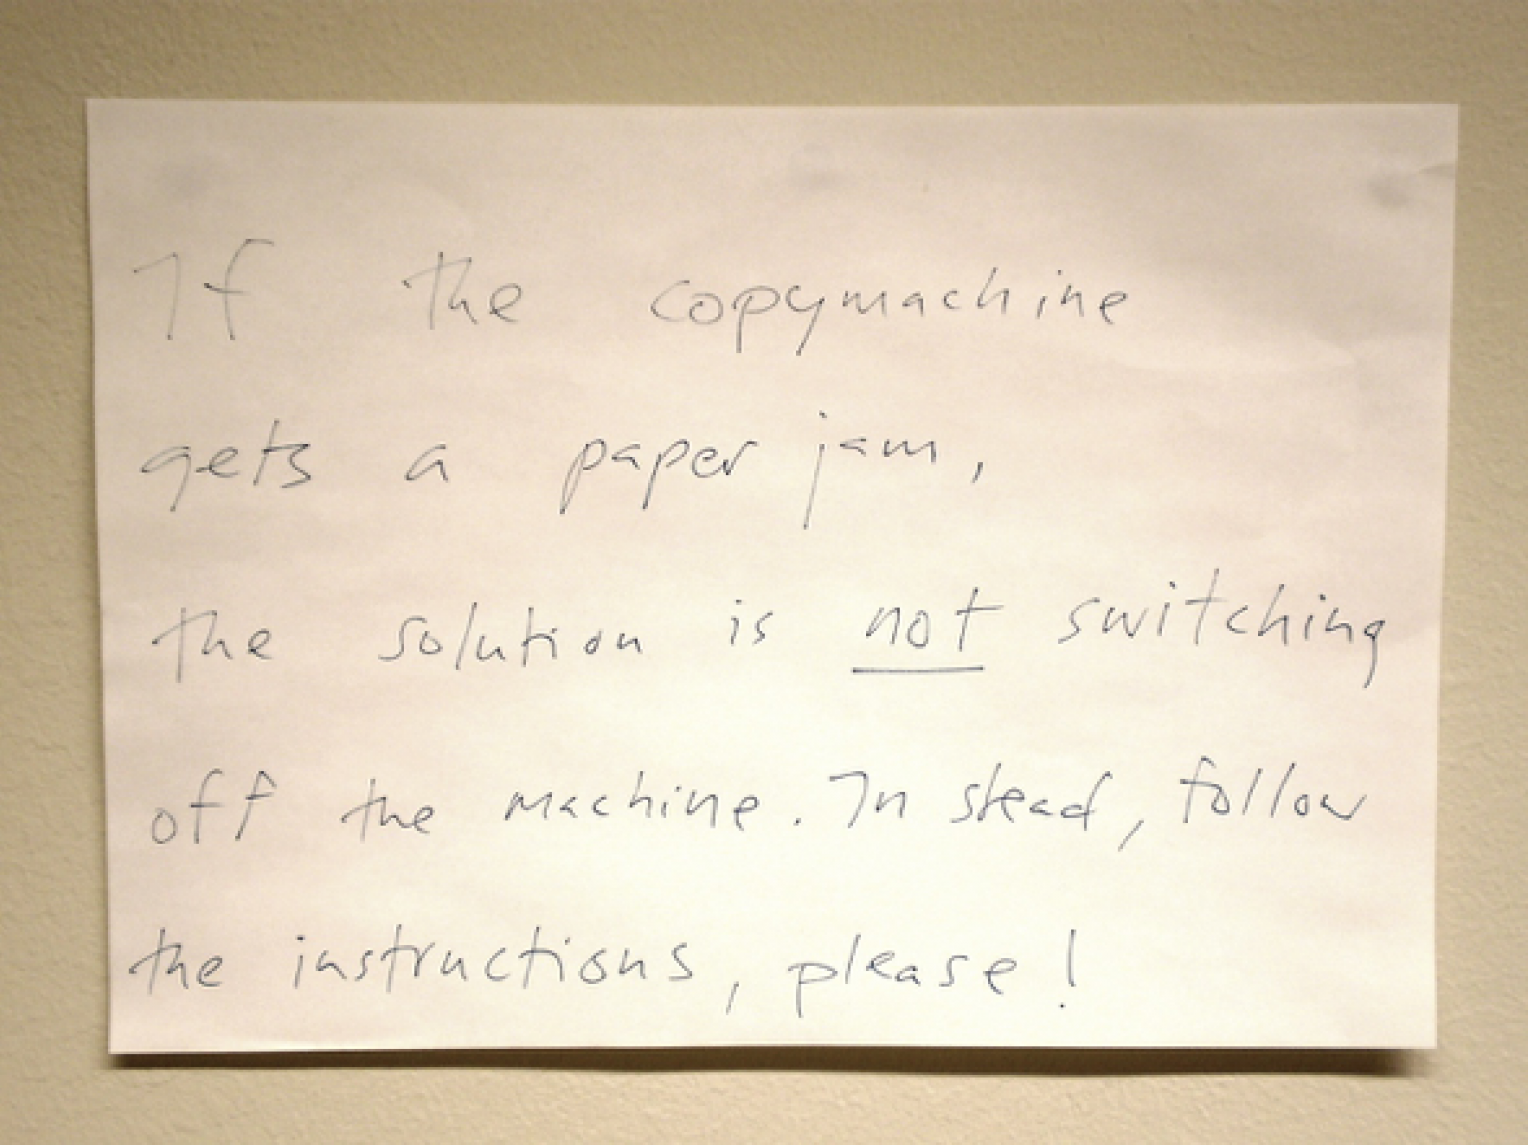 If the copymachine
gets a paper jam,
the solution is not switching
off the machine. In stead, follow
the instructions, please!